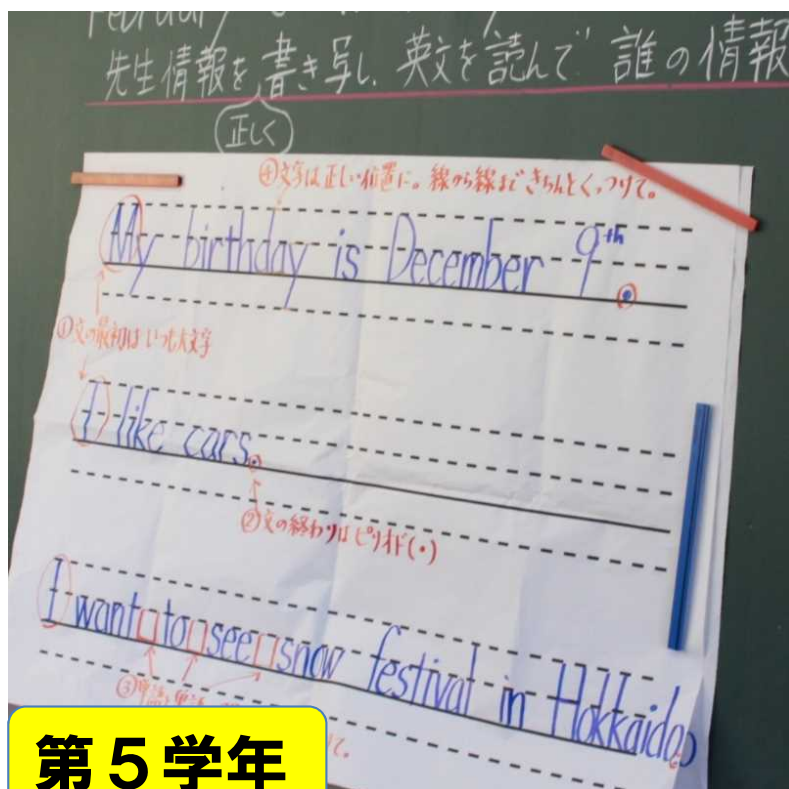 February
先生情報を書き写し、英文を読んで 誰の情報
正しく
④文字は正しい位置に。線から線まできちんとくっつけて。
My birthday is December 9th.
①文の最初はいつも大文字
I like cars.
②文の終わりはピリオド(.)
I want to see snow festival in Hokkaido.
③単語 単語
て。
第5学年